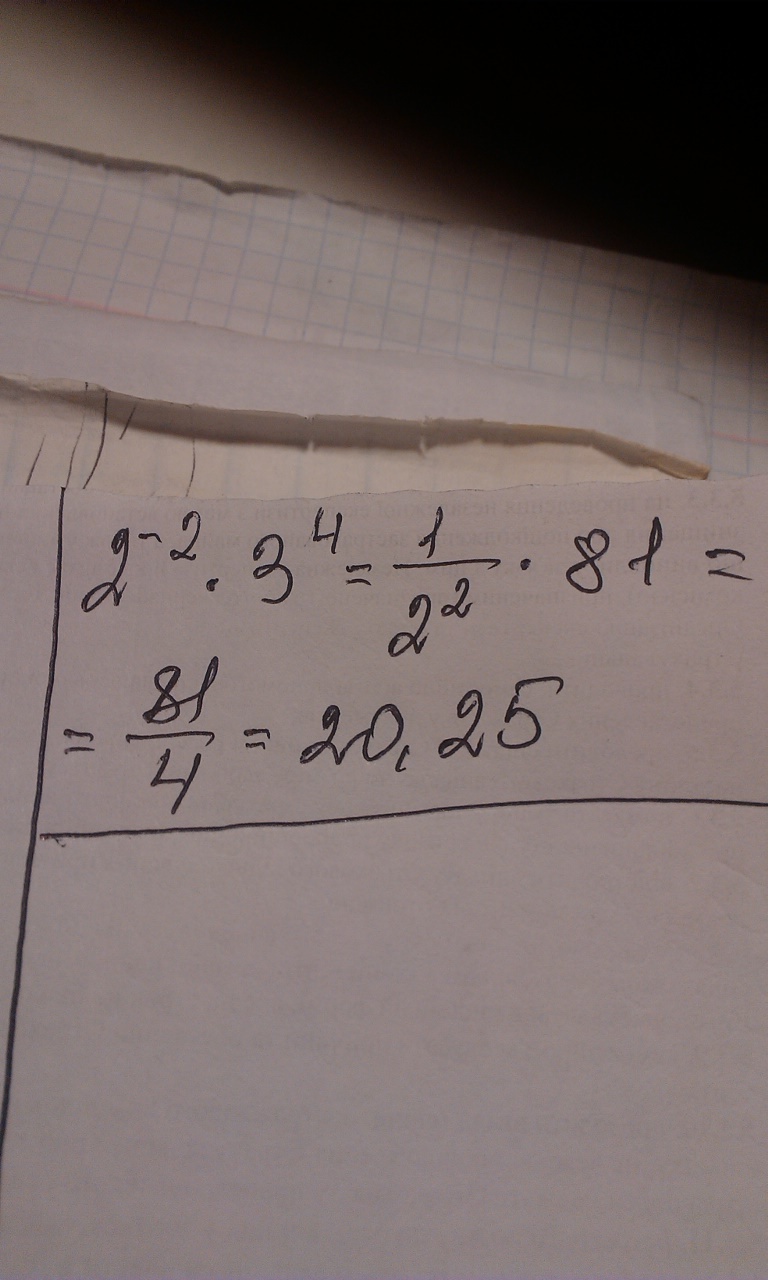 2⁻² · 3⁴ = 1/2² · 81 =
= 81/4 = 20,25